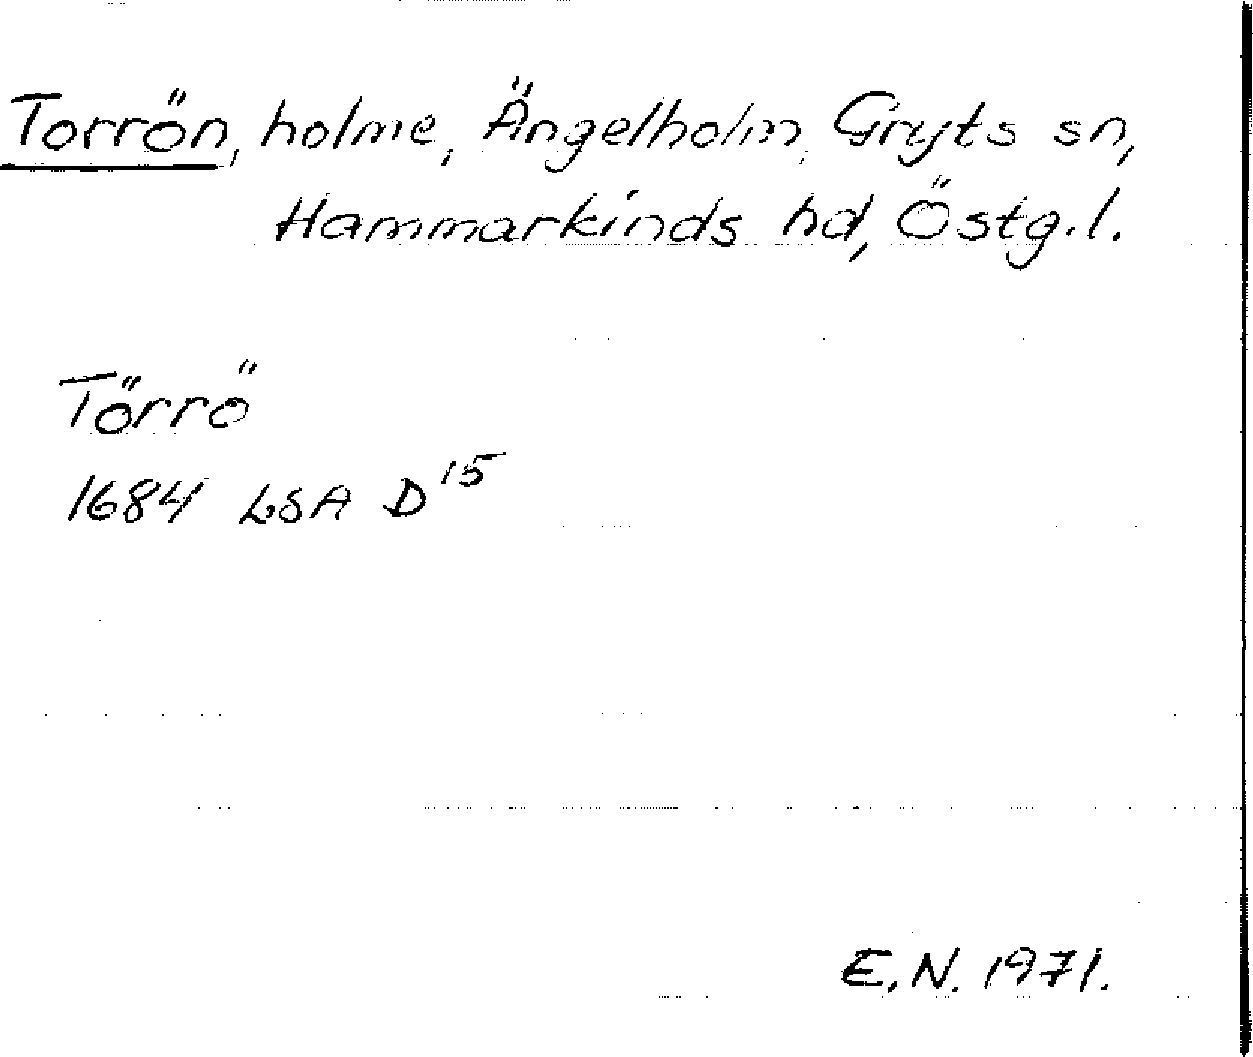 Torrön, holme, Ängelholm, Gryts sn,
Hammarkinds hd, Östg.l.
Törrö
1684 LSA D15
E.N. 1971.